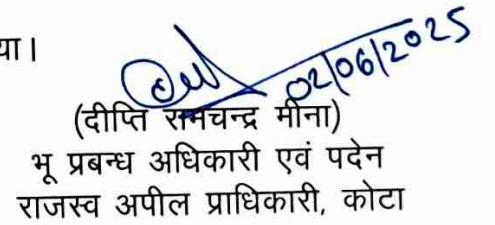 या।
02/06/2025
(दीप्ति रामचन्द्र मीना)
भू प्रबन्ध अधिकारी एवं पदेन
राजस्व अपील प्राधिकारी, कोटा